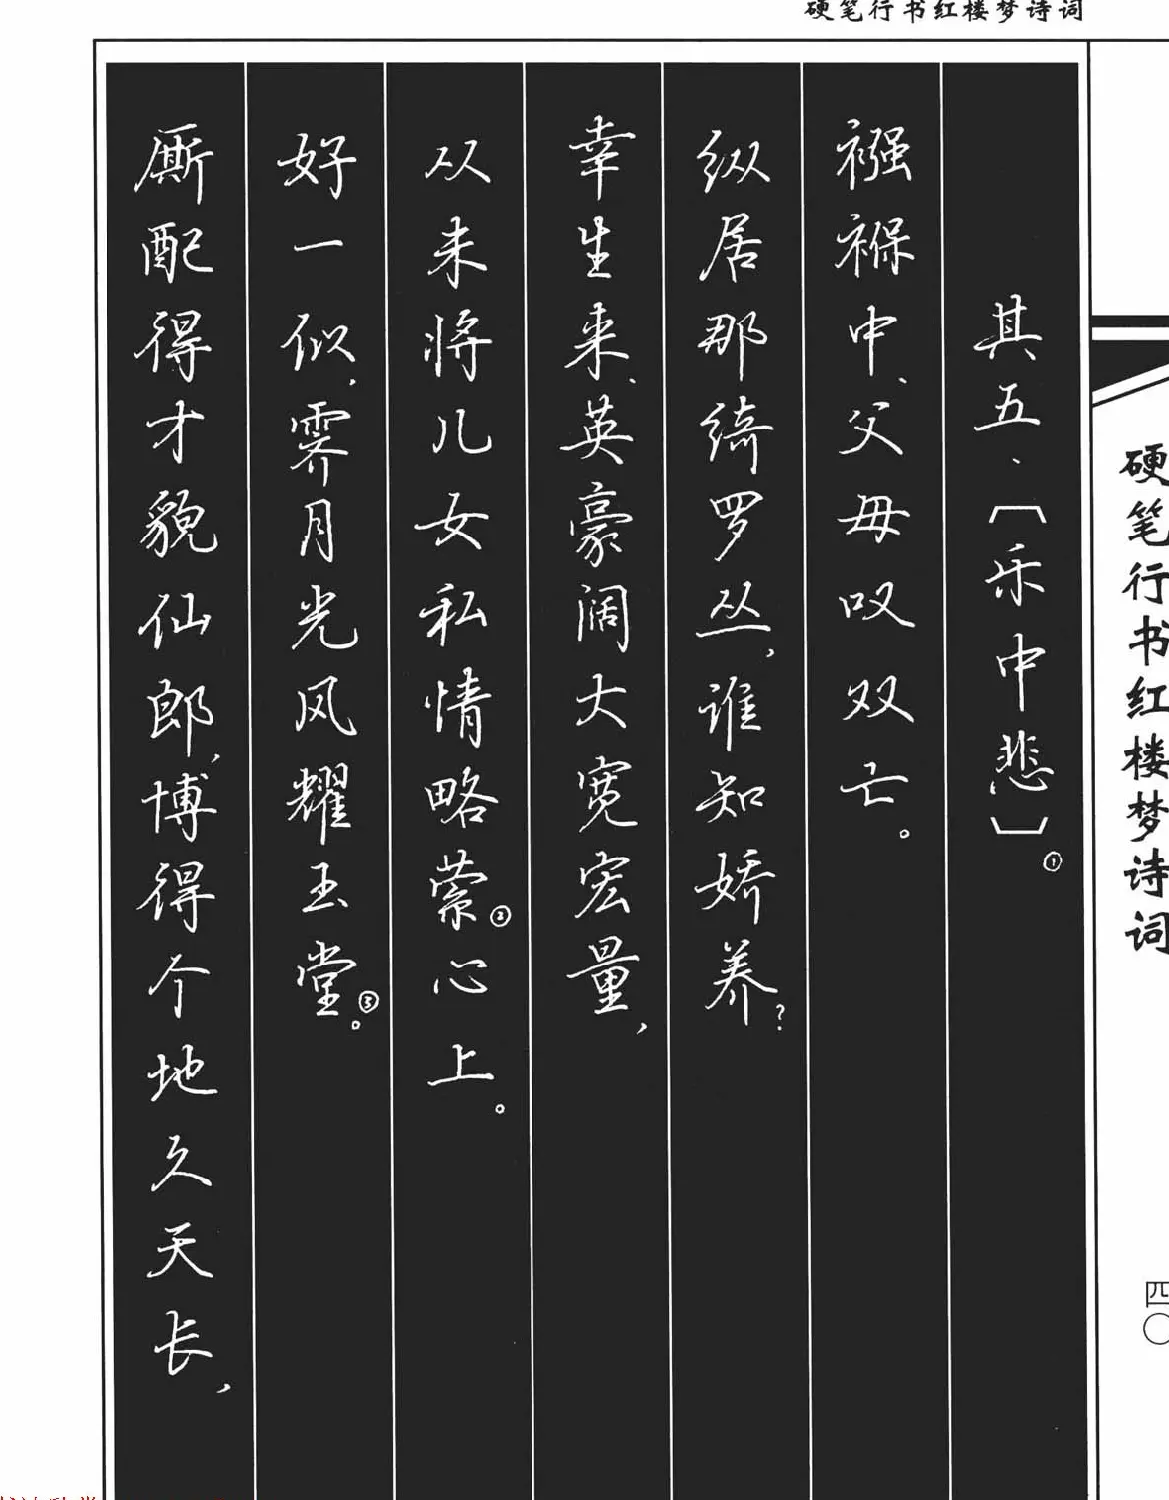 硬笔行书红楼梦诗词
其五、〔乐中悲〕①
襁褓中、父母叹双亡。
纵居那绮罗丛，谁知娇养？
幸生来、英豪阔大宽宏量，
从未将儿女私情略萦②心上。
好一似，霁月光风耀玉堂③。
厮配得才貌仙郎，博得个地久天长，
硬笔行书红楼梦诗词
四〇